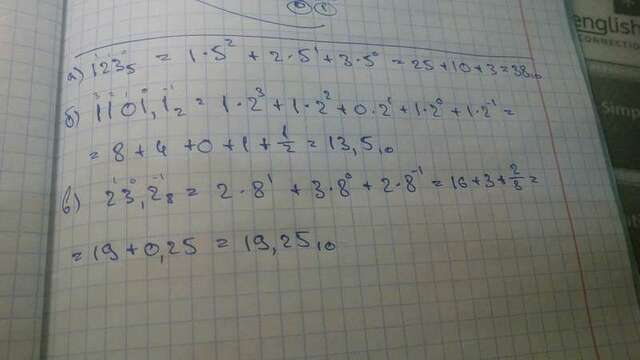 а) 123₅ = 1·5² + 2·5¹ + 3·5⁰ = 25+10+3=38₁₀
б) 1101,1₂ = 1·2³ + 1·2² + 0·2¹ + 1·2⁰ + 1·2⁻¹ =
= 8 + 4 + 0 + 1 + 1/2 = 13,5₁₀
в) 23,2₈ = 2·8¹ + 3·8⁰ + 2·8⁻¹ = 16+3+2/8 =
= 19 + 0,25 = 19,25₁₀
english
CONNECTION
Simp